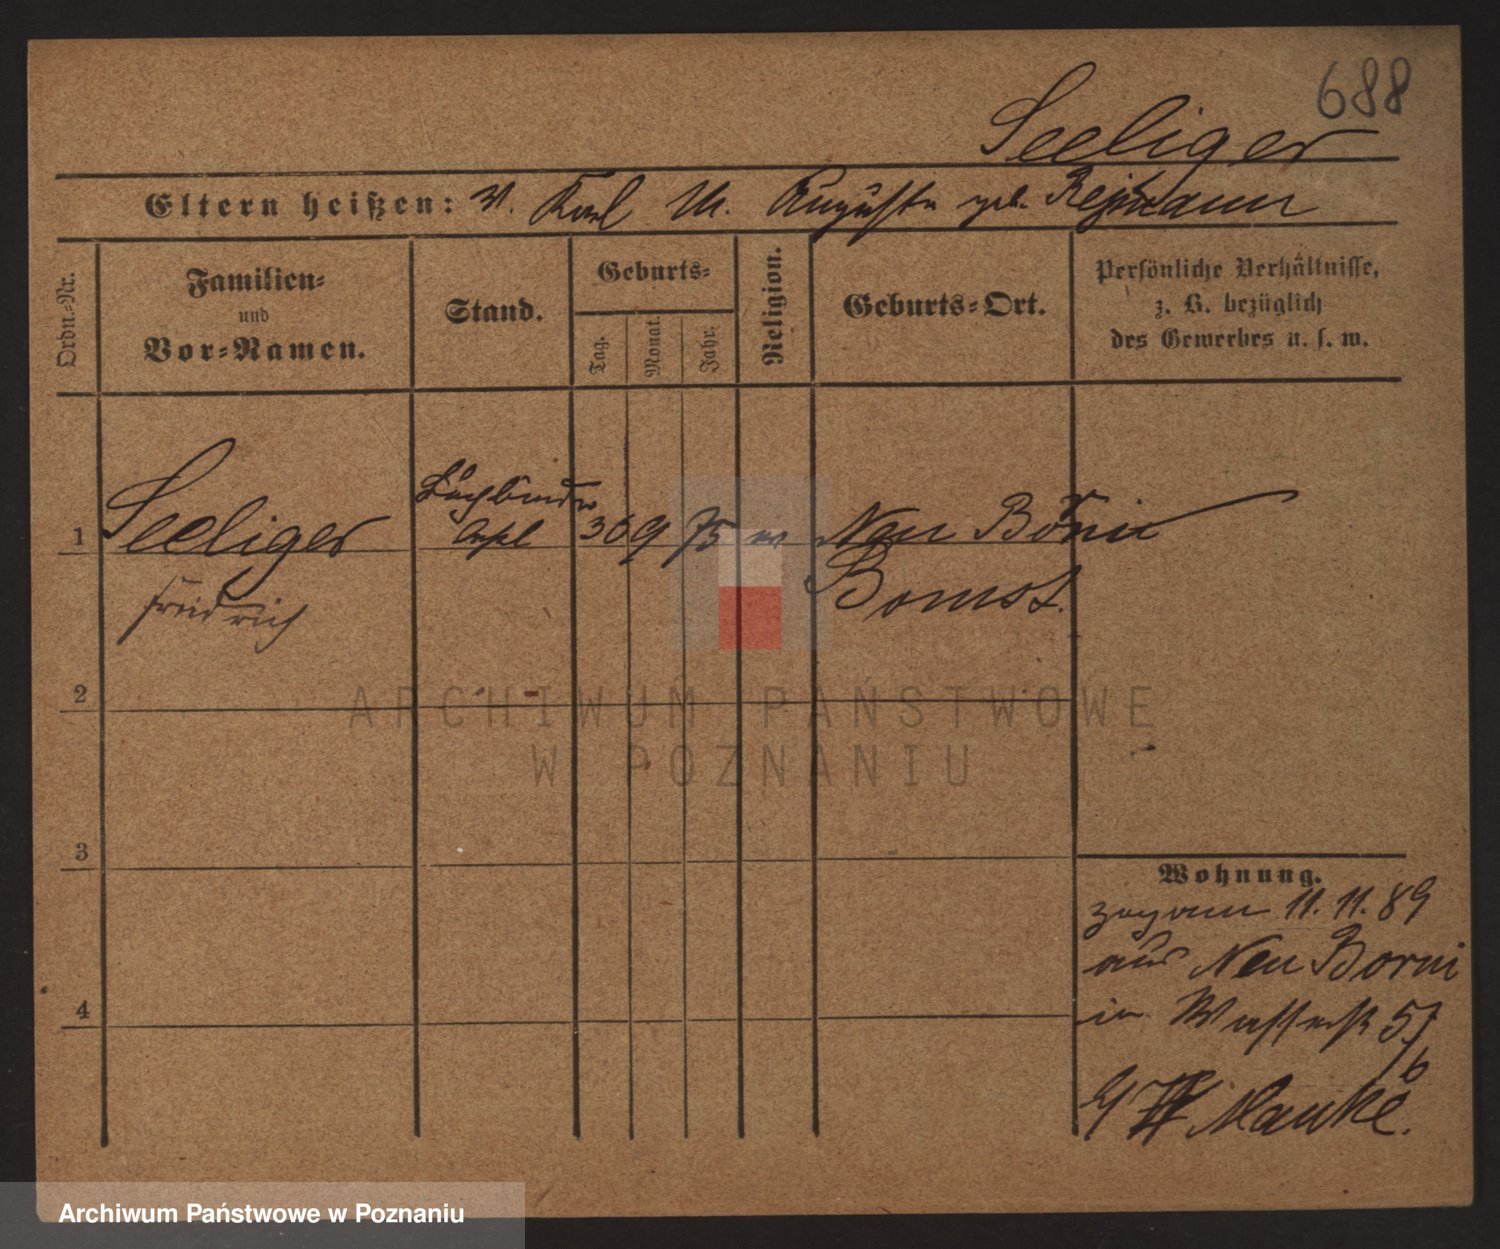 688
Seeliger
Eltern heißen: V. Karl M. Auguste geb. Rejmann
Ordn.-Nr.
Familien-
und
Vor-Namen.
Stand.
Geburts-
Tag.
Monat.
Jahr.
Religion.
Geburts-Ort.
Persönliche Verhältnisse,
z. B. bezüglich
des Gewerbes u. s. w.
1
Seeliger
Friedrich
Buchbinder
30 9 75 ev Neu Borui
Bomst.
2
3
4
Wohnung.
zugezogen 11. 11. 89
aus Neu Borui
in Wasserstr 5/6
Manke.
ARCHIWUM PAŃSTWOWE
W POZNANIU
Archiwum Państwowe w Poznaniu